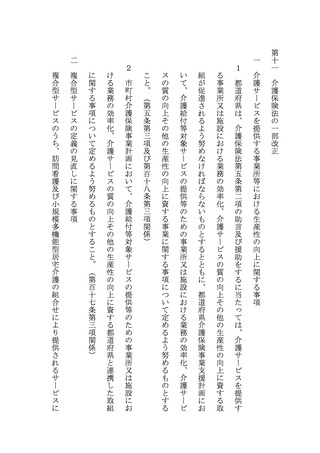 第十一　介護保険法の一部改正
一　介護サービスを提供する事業所等における生産性の向上に関する事項
１　都道府県は、介護保険法第五条第二項の助言及び援助をするに当たっては、介護サービスを提供す
る事業所又は施設における業務の効率化、介護サービスの質の向上その他の生産性の向上に資する取
組が促進されるよう努めなければならないものとするとともに、都道府県介護保険事業支援計画にお
いて、介護給付等対象サービスの提供等のための事業所又は施設における業務の効率化、介護サービ
スの質の向上その他の生産性の向上に資する事業に関する事項について定めるよう努めるものとする
こと。（第五条第三項及び第百十八条第三項関係）
２　市町村介護保険事業計画において、介護給付等対象サービスの提供等のための事業所又は施設にお
ける業務の効率化、介護サービスの質の向上その他の生産性の向上に資する都道府県と連携した取組
に関する事項について定めるよう努めるものとすること。（第百十七条第三項関係）
二　複合型サービスの定義の見直しに関する事項
複合型サービスのうち、訪問看護及び小規模多機能型居宅介護の組合せにより提供されるサービスに